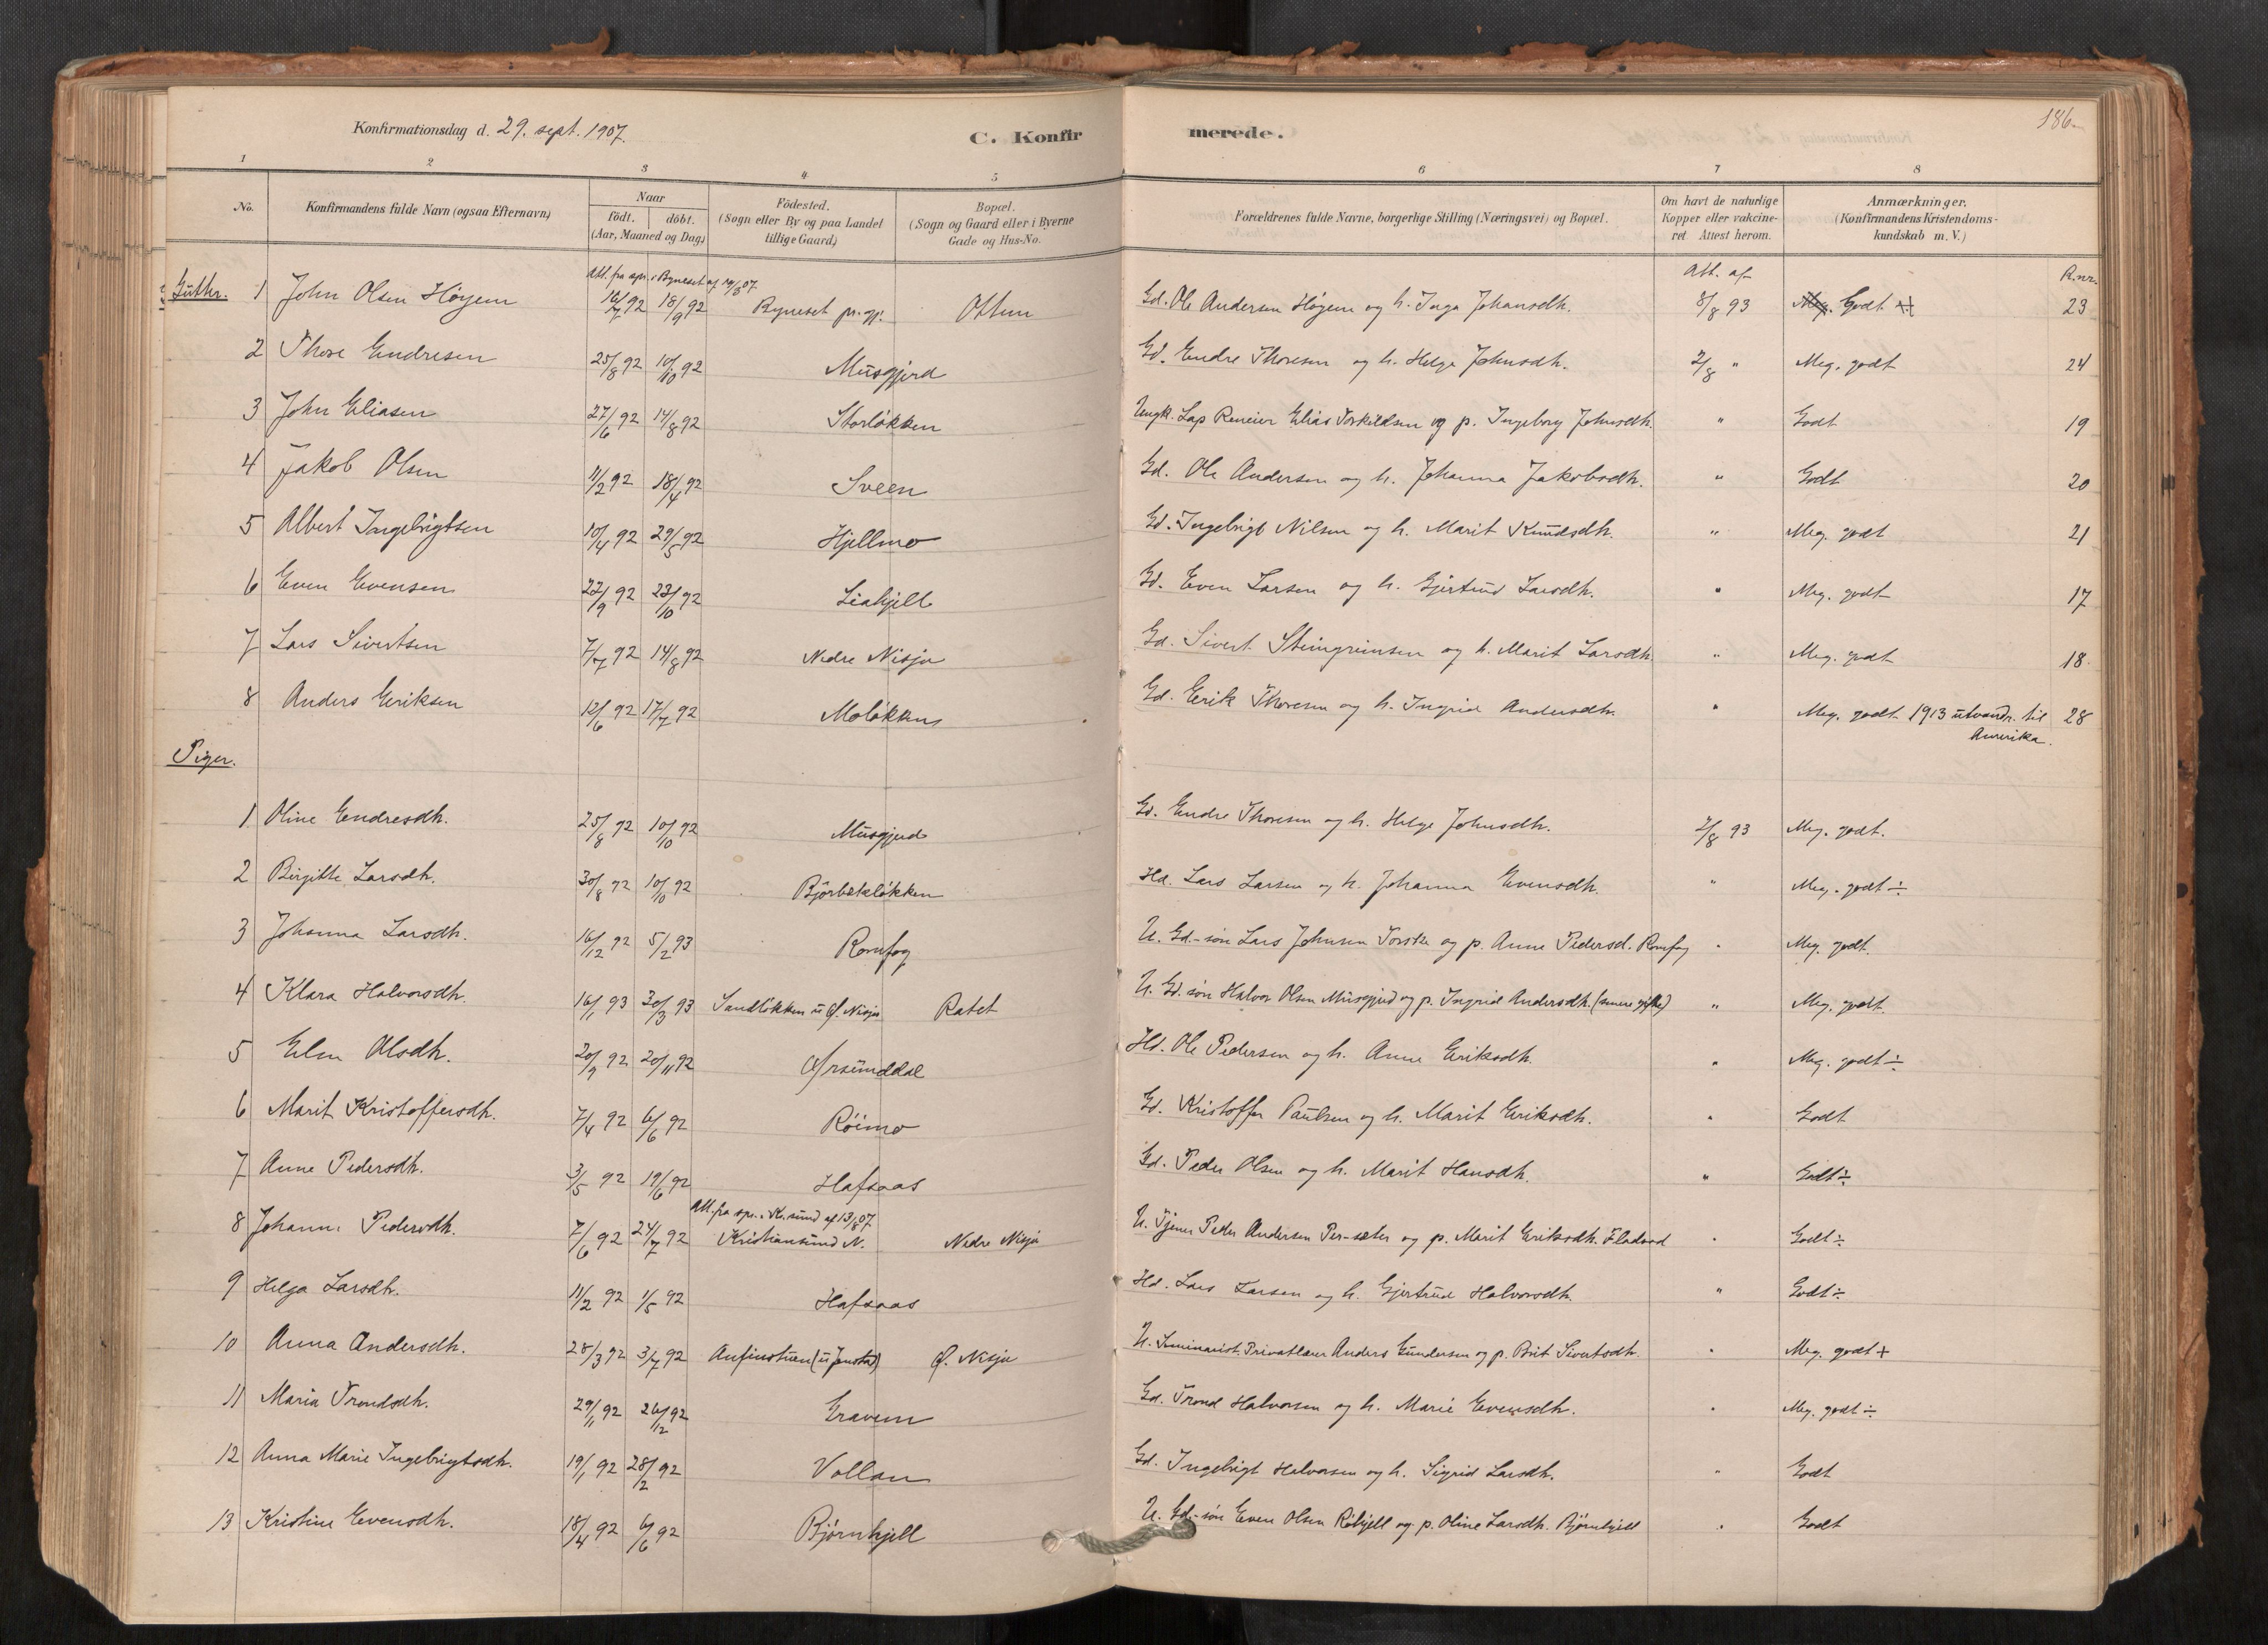 Konfirmationsdag d. 29. sept. 1907.
C. Konfirmerede.
186
1 2 3 4 5 6 7 8
No. Konfirmandens fulde Navn (ogsaa Efternavn) Naar födt. döbt. (Aar, Maaned og Dag) Födested. (Sogn eller By og paa Landet tillige Gaard) Bopæl. (Sogn og Gaard eller i Byerne Gade og Hus-No. Forældrenes fulde Navne, borgerlige Stilling (Næringsvei) og Bopæl. Om havt de naturlige Kopper eller vakcineret Attest herom. Anmærkninger. (Konfirmandens Kristendomskundskab m. V.)
Att. fra spr. i Byneset af 19/8 07. Att. af R.nr.
Gutter. 1 John Olsen Höyem 16/7 92 18/9 92 Byneset pr.gj. Ottem Gd. Ole Andersen Höyem og h. Inga Johansdh. 8/8 93 Godt 23
2 Thore Endresen 25/8 92 10/10 92 Musgjerd Gd. Endre Thoresen og h. Helge Johnsdh. 2/8 " Meg. godt 24
3 John Eliasen 27/6 92 14/8 92 Storløkken Ungk. Lap Reneier Elias Torkildsen og p. Ingeborg Johnsdh. " Godt 19
4 Jakob Olsen 11/2 92 18/4 92 Sveen Gd. Ole Andersen og h. Johanna Jakobsdh. " Godt 20
5 Albert Ingebrigtsen 10/4 92 29/5 92 Hjellmo Gd. Ingebrigt Nilsen og h. Marit Knudsdh. " Meg. godt 21
6 Even Evensen 22/9 92 23/10 92 Liahjell Gd. Even Larsen og h. Gjertrud Larsdh. " Meg. godt 17
7 Lars Sivertsen 7/7 92 14/8 92 Nedre Nisja Gd. Sivert Steingrimsen og h. Marit Larsdh. " Meg. godt 18
8 Anders Eriksen 12/6 92 17/7 92 Moløkken Gd. Erik Thoresen og h. Ingrid Andersdh. " Meg. godt 1913 utvandr. til Amerika. 28
Piger.
1 Oline Endresdh. 25/8 92 10/10 92 Musgjerd Gd. Endre Thoresen og h. Helge Johnsdh. 2/8 93 Meg. godt.
2 Birgitte Larsdh. 30/8 92 10/10 92 Björbekløkken Hd. Lars Larsen og h. Johanna Evensdh. " Meg. godt ÷
3 Johanna Larsdh. 16/12 92 5/2 93 Romfog U. Gd.-søn Lars Johnsen Torske og p. Anne Pedersd. Romfog " Meg. godt.
4 Klara Halvorsdh. 16/1 93 30/3 93 Sandløkken u Ø. Nisja Ratet U. Gd. søn Halvor Olsen Musgjerd og p. Ingrid Andersdh. (senere gifte) " Meg. godt.
5 Elen Olsdh. 20/9 92 20/11 92 Ørsunddal Hd. Ole Pedersen og h. Anne Eriksdh. " Meg. godt ÷
6 Marit Kristoffersdh. 7/4 92 6/6 92 Röimo Gd. Kristoffer Paulsen og h. Marit Eriksdh. " Godt
7 Anne Pedersdh. 3/5 92 19/6 92 Hafsaas Gd. Peder Olsen og h. Marit Hansdh. " Godt ÷
Att. fra spr. i Kr.sund af 13/8 07.
8 Johanne Pedersdh. 7/6 92 24/7 92 Kristiansund N. Nedre Nisja U. Tjener Peder Andersen Per-sæter og p. Marit Eriksdh. Fladvad " Godt ÷
9 Helga Larsdh. 11/2 92 1/5 92 Hafsaas Hd. Lars Larsen og h. Gjertrud Halvorsdh. " Godt ÷
10 Anna Andersdh. 28/3 92 3/7 92 Anfinstuen (u Jenstad) Ø. Nisja U. Seminarist. Privatlærer Anders Gundersen og p. Brit Sivertsdh. " Meg. godt +
11 Maria Trondsdh. 29/11 92 26/12 92 Gravem Gd. Trond Halvorsen og h. Marie Evensdh. " Meg. godt ÷
12 Anna Marie Ingebrigtsdh. 19/1 92 28/2 92 Vollan Gd. Ingebrigt Halvorsen og h. Sigrid Larsdh. " Godt
13 Kristine Evensdh. 18/4 92 6/6 92 Björnhjell U. Gd.-søn Even Olsen Røhjell og p. Oline Larsdh. Björnhjell " Godt